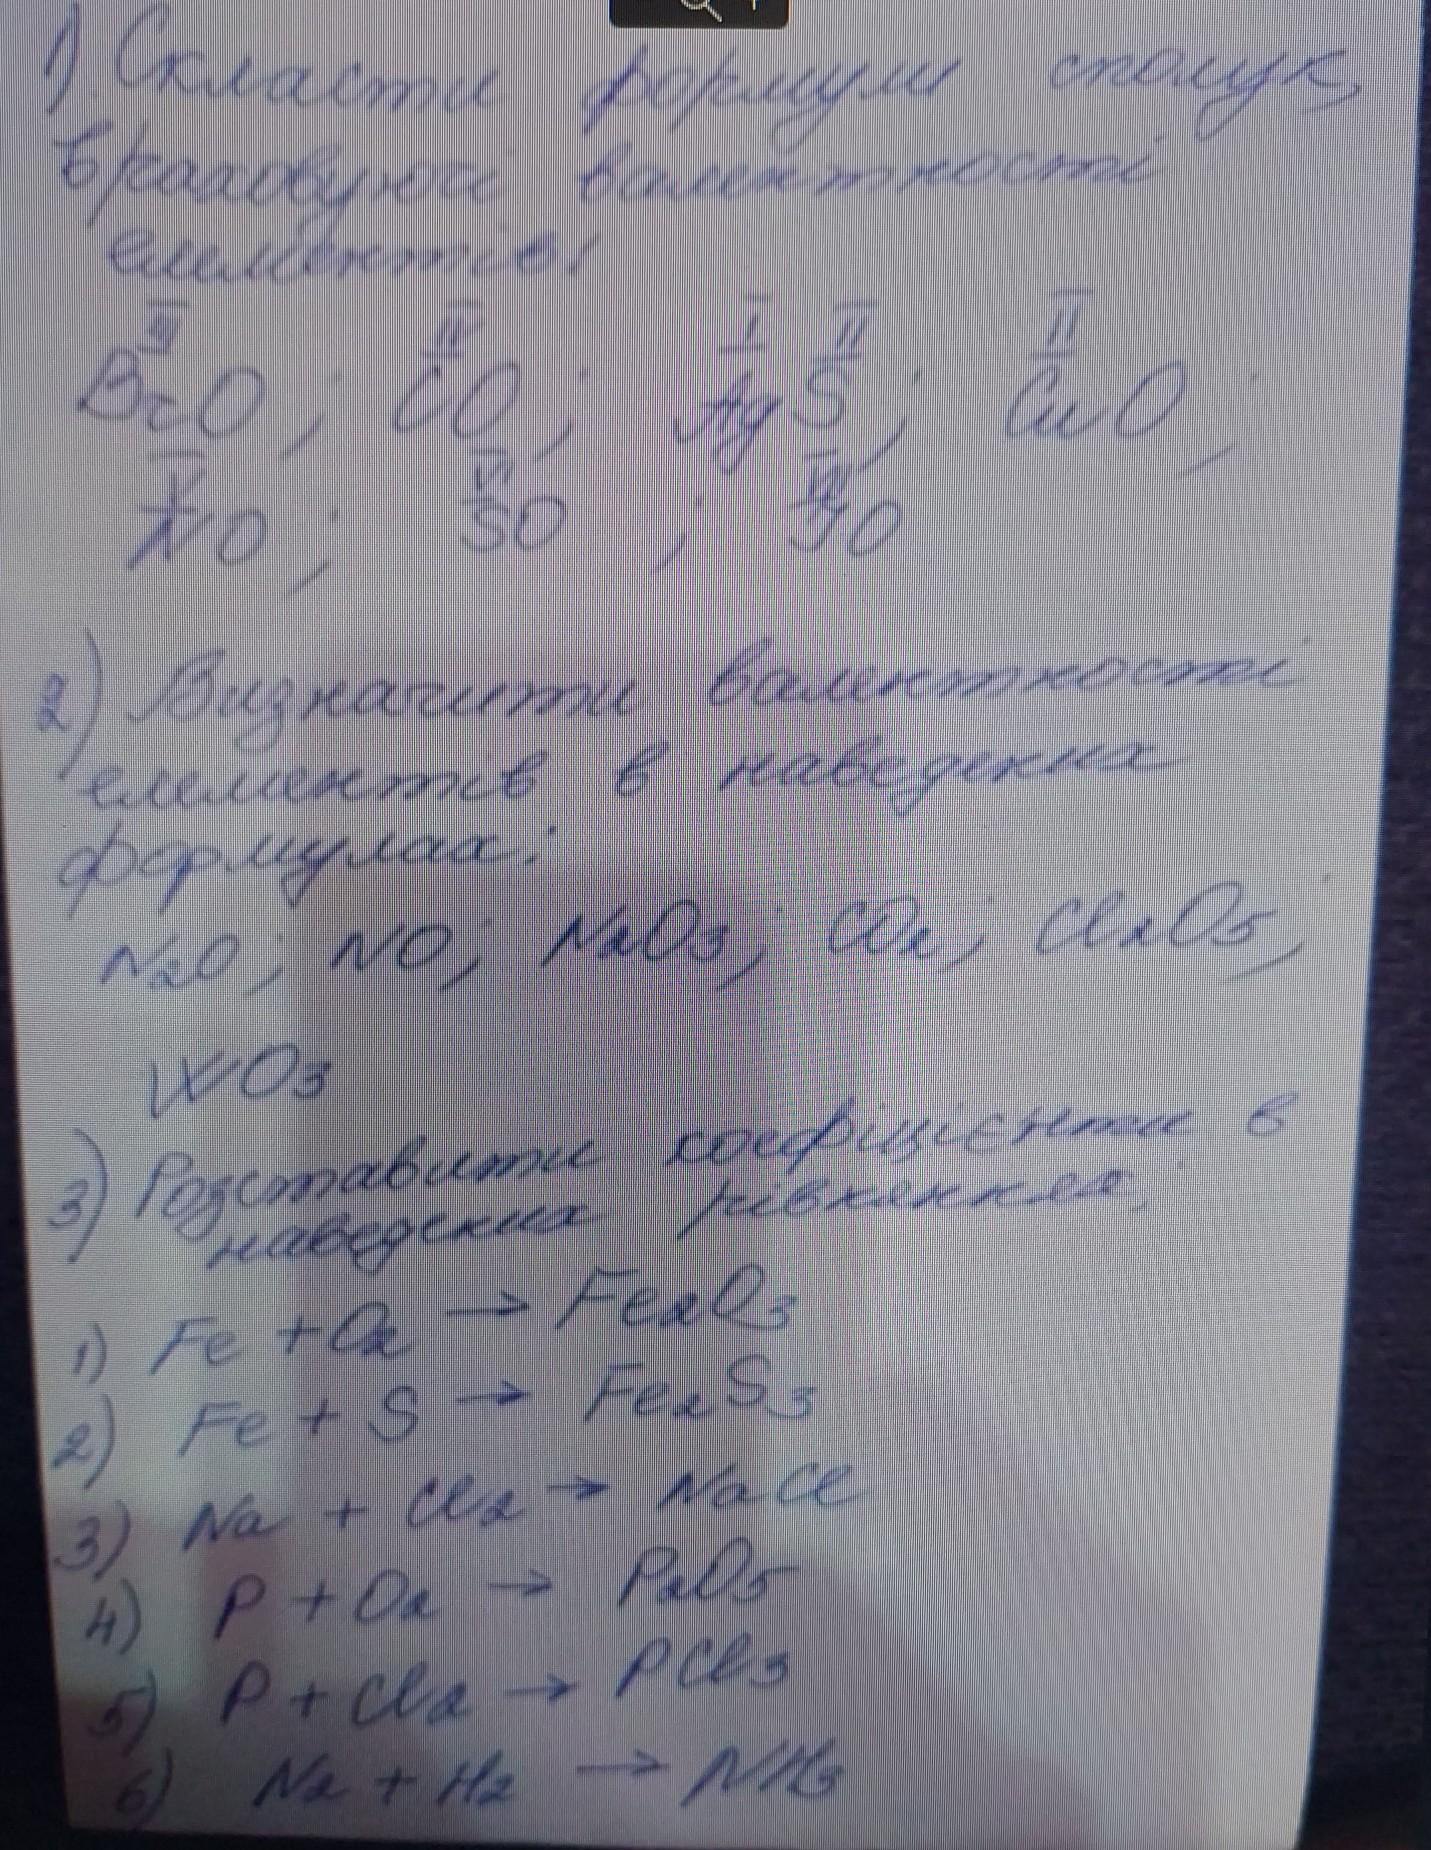 1) Скласти формули сполук,
враховуючі валентності
елементів:
III IV I II II
BrO; CO; Ag S; CuO;
V VI VII
NO; SO ; JO
2) Визначити валентності
елементів в наведених
формулах:
N2O; NO; N2O3; CO2; Cl2O5;
WO3
3) Розставити коефіцієнти в
наведених рівняннях,
1) Fe + O2 → Fe2O3
2) Fe + S → Fe2S3
3) Na + Cl2 → NaCl
4) P + O2 → P2O5
5) P + Cl2 → PCl3
6) N2 + H2 → NH3